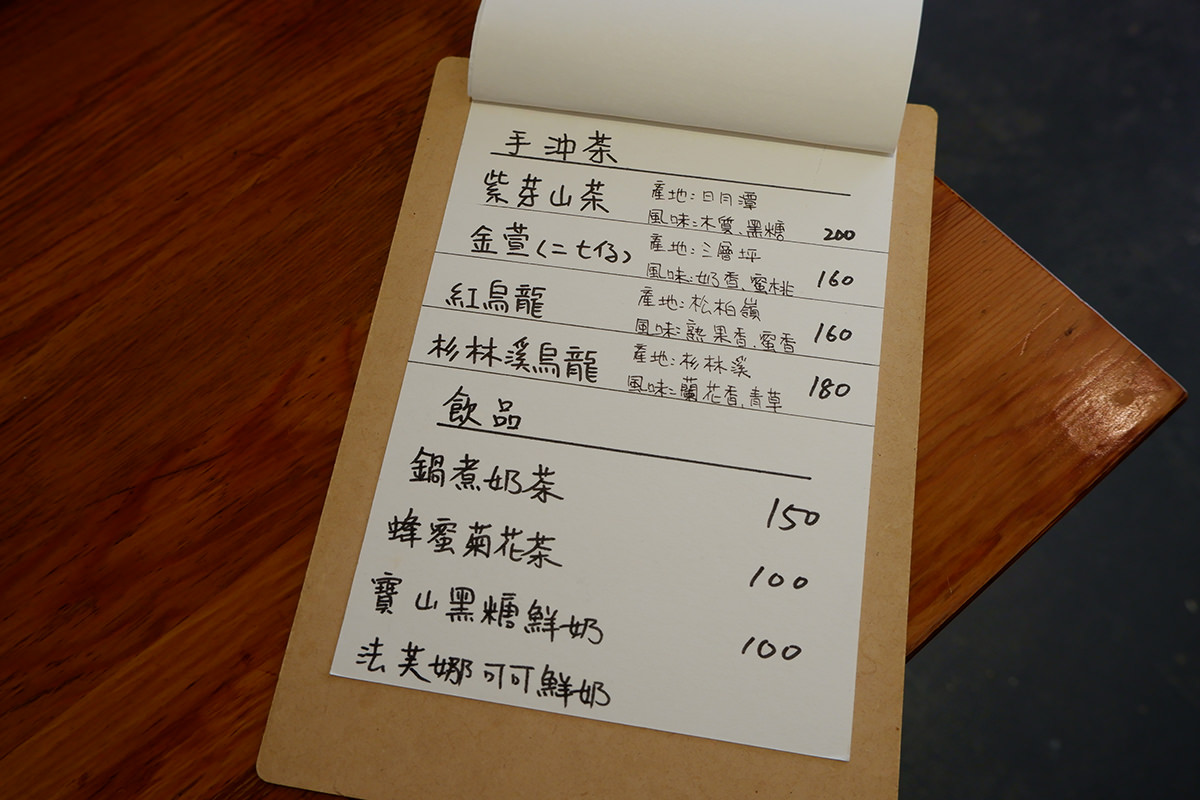 手沖茶
紫芽山茶 產地:日月潭
風味:木質、黑糖 200
金萱(二七仔) 產地:三層坪
風味:奶香、蜜桃 160
紅烏龍 產地:松柏嶺
風味:熟果香、蜜香 160
杉林溪烏龍 產地:杉林溪
風味:蘭花香、青草 180
飲品
鍋煮奶茶 150
蜂蜜菊花茶 100
寶山黑糖鮮奶 100
法芙娜可可鮮奶